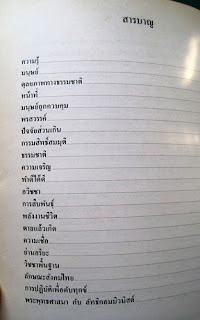 สารบาญ
ความรู้
มนุษย์
ดุลยภาพทางธรรมชาติ
หน้าที่
มนุษย์ถูกควบคุม
พรสวรรค์
ปัจจัยส่วนเกิน
กรรมสิทธิ์สมมุติ
ธรรมชาติ
ความเจริญ
ทำดีได้ดี
อวิชชา
การสืบพันธุ์
พลังงานชีวิต
ตายแล้วเกิด
ความเชื่อ
อ่านอริยะ
วิชชาพื้นฐาน
ลักษณะสังคมไทย
การปฏิบัติเพื่อดับทุกข์
พระพุทธศาสนา กับ ลัทธิคอมมิวนิสต์